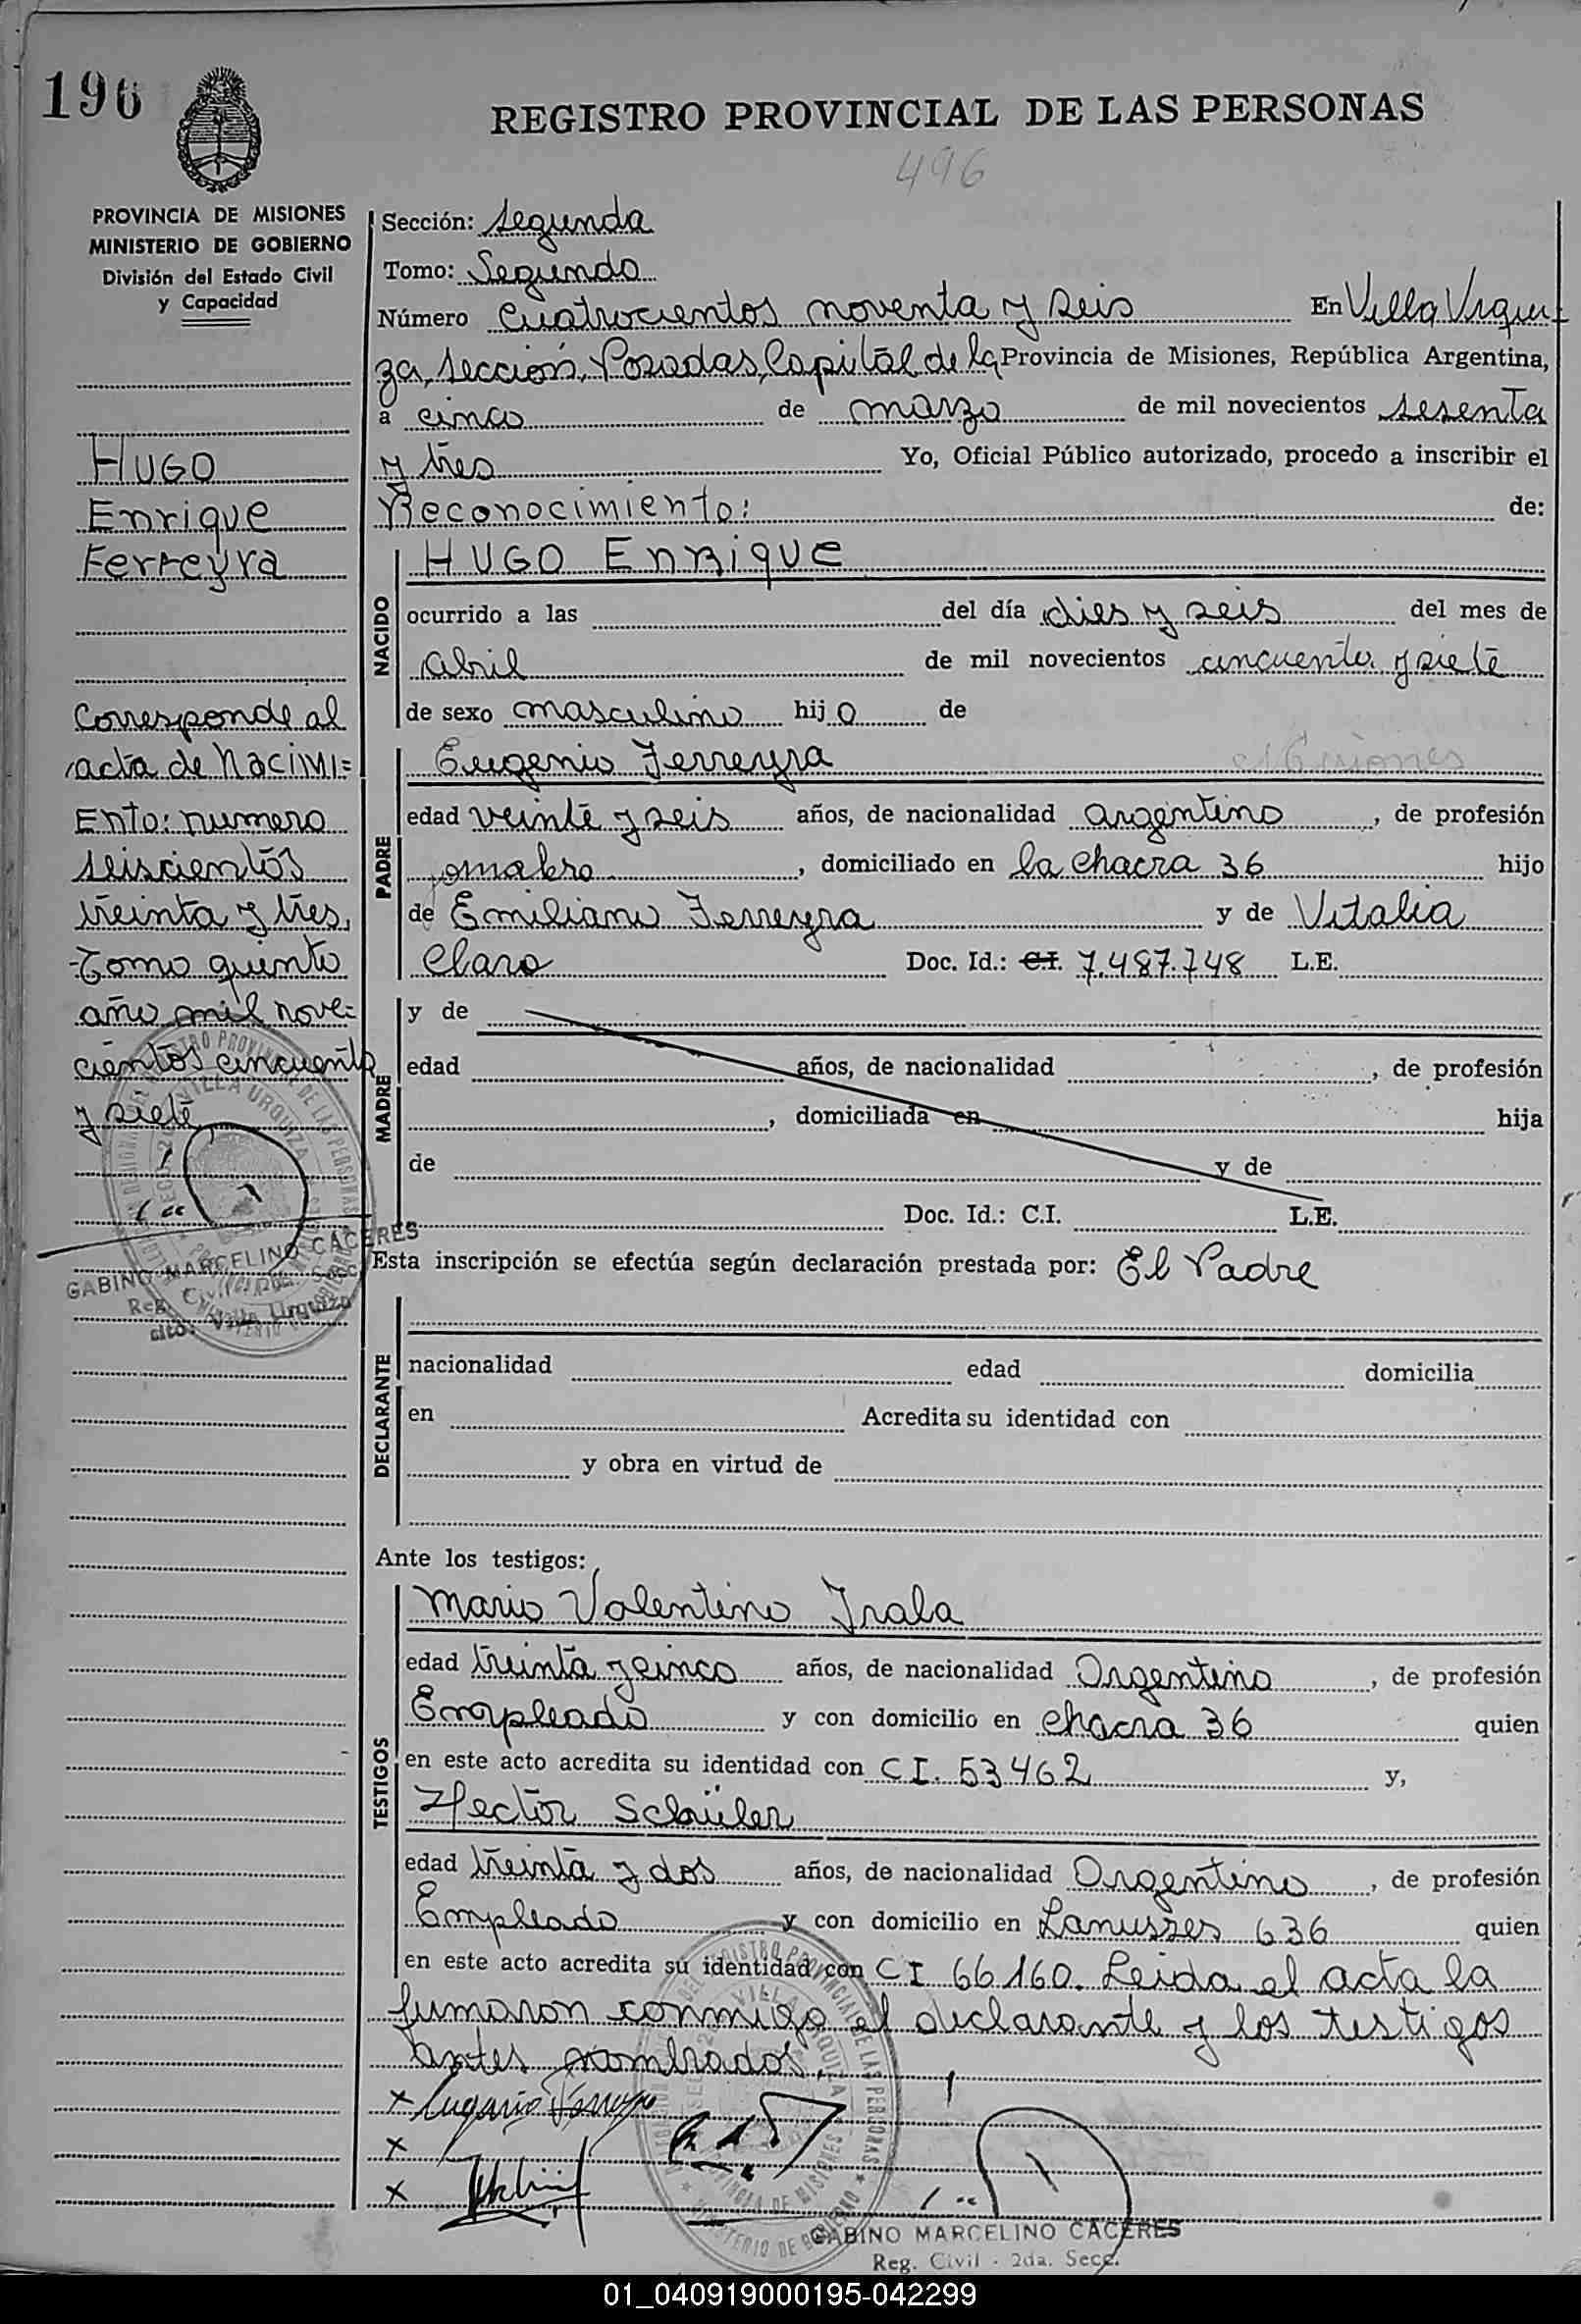 196
REGISTRO PROVINCIAL DE LAS PERSONAS
496
PROVINCIA DE MISIONES
MINISTERIO DE GOBIERNO
División del Estado Civil
y Capacidad
Hugo
Enrique
Ferreyra
Corresponde al
acta de Nacimi=
Ento: numero
seiscientos
treinta y tres,
Tomo quinto
año mil nove=
cientos cincuenta
y siete
GABINO MARCELINO CACERES
Reg. Civil
Villa Urquiza
Sección: segunda
Tomo: Segundo
Número cuatrocientos noventa y seis En Villa Urqui
za, sección, Posadas, Capital de la Provincia de Misiones, República Argentina,
a cinco de marzo de mil novecientos sesenta
y tres Yo, Oficial Público autorizado, procedo a inscribir el
Reconocimiento: de:
NACIDO
HUGO Enrique
ocurrido a las del día dies y seis del mes de
abril de mil novecientos cincuenta y siete
de sexo masculino hijo de
PADRE
Eugenio Ferreyra Misiones
edad veinte y seis años, de nacionalidad argentino, de profesión
jornalero, domiciliado en la chacra 36 hijo
de Emiliano Ferreyra y de Vitalia
Claro Doc. Id.: C.I. 7.487.748 L.E.
MADRE
y de
edad años, de nacionalidad , de profesión
, domiciliada en hija
de y de
Doc. Id.: C.I. L.E.
Esta inscripción se efectúa según declaración prestada por: El Padre
DECLARANTE
nacionalidad edad domicilia
en Acredita su identidad con
y obra en virtud de
Ante los testigos:
TESTIGOS
Mario Valentino Irala
edad treinta y cinco años, de nacionalidad Argentino, de profesión
Empleado y con domicilio en chacra 36 quien
en este acto acredita su identidad con C I. 53.462 y,
Hector
edad treinta y dos años, de nacionalidad Argentino, de profesión
Empleado y con domicilio en Lanusses 636 quien
en este acto acredita su identidad con C I 66.160. Leida el acta la
fumaron conmigo el declarante y los testigos
antes nombrados.
x Eugenio Ferreyra
x
x
GABINO MARCELINO CACERES
Reg. Civil - 2da. Secc.
01_040919000195-042299